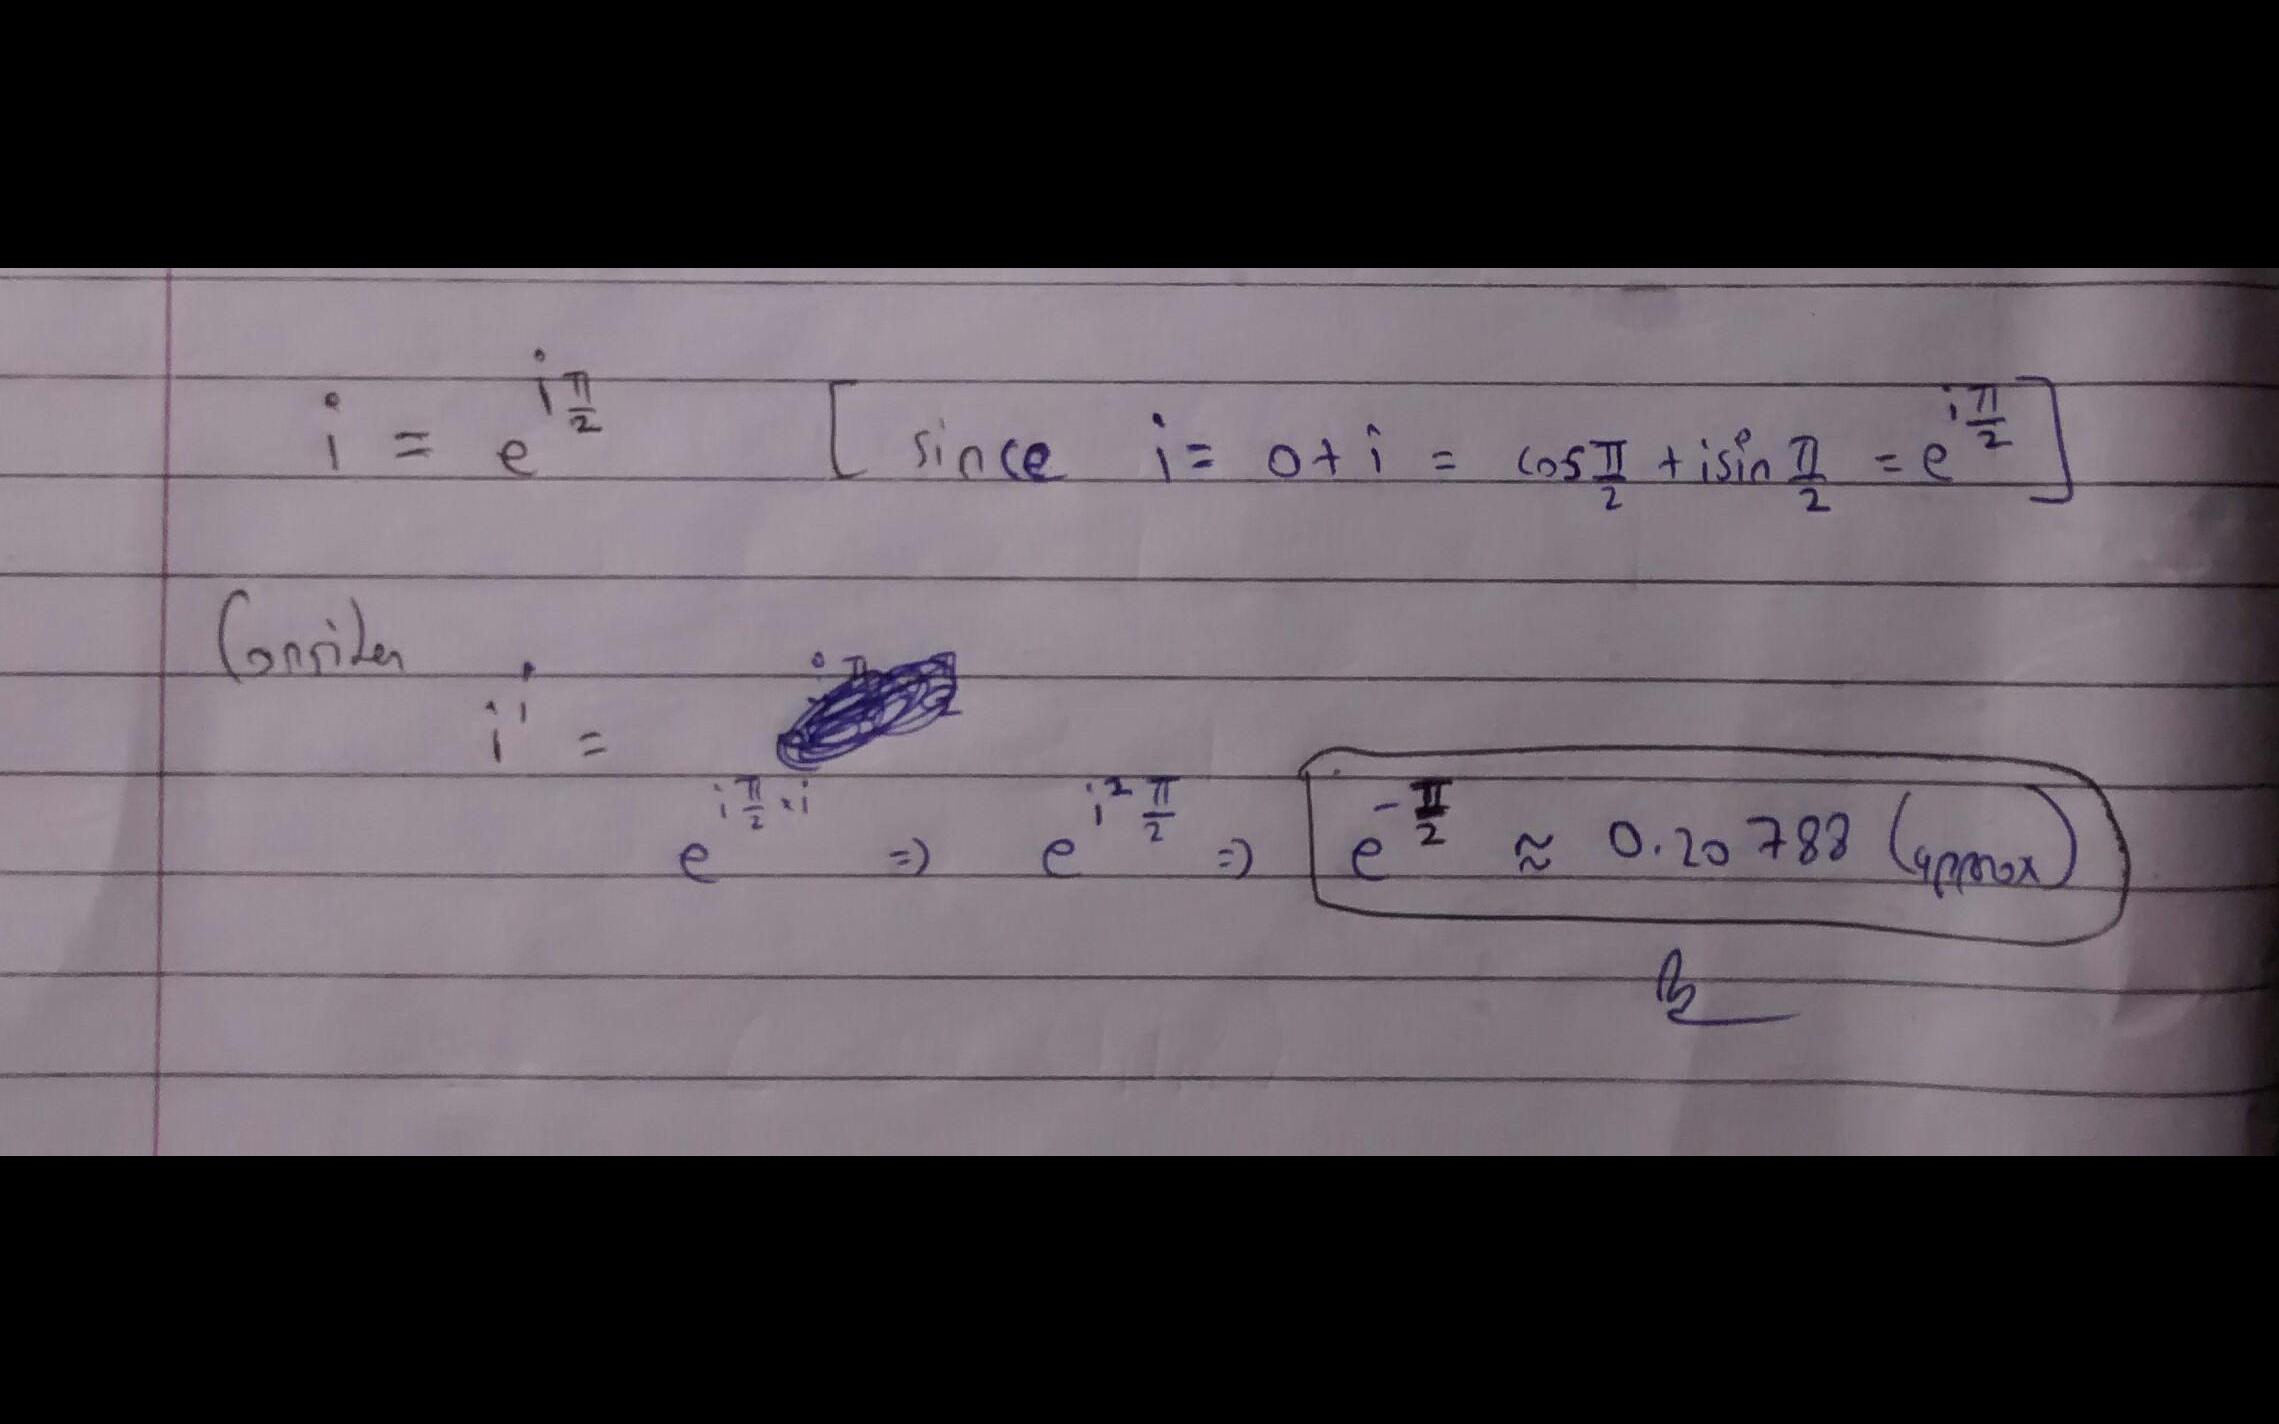 i = e^{i π/2} [ since i = 0 + i = cos π/2 + i sin π/2 = e^{i π/2} ]
Consider
i^i =
e^{i π/2 × i} ⇒ e^{i² π/2} ⇒ e^{-π/2} ≈ 0.20788 (approx)